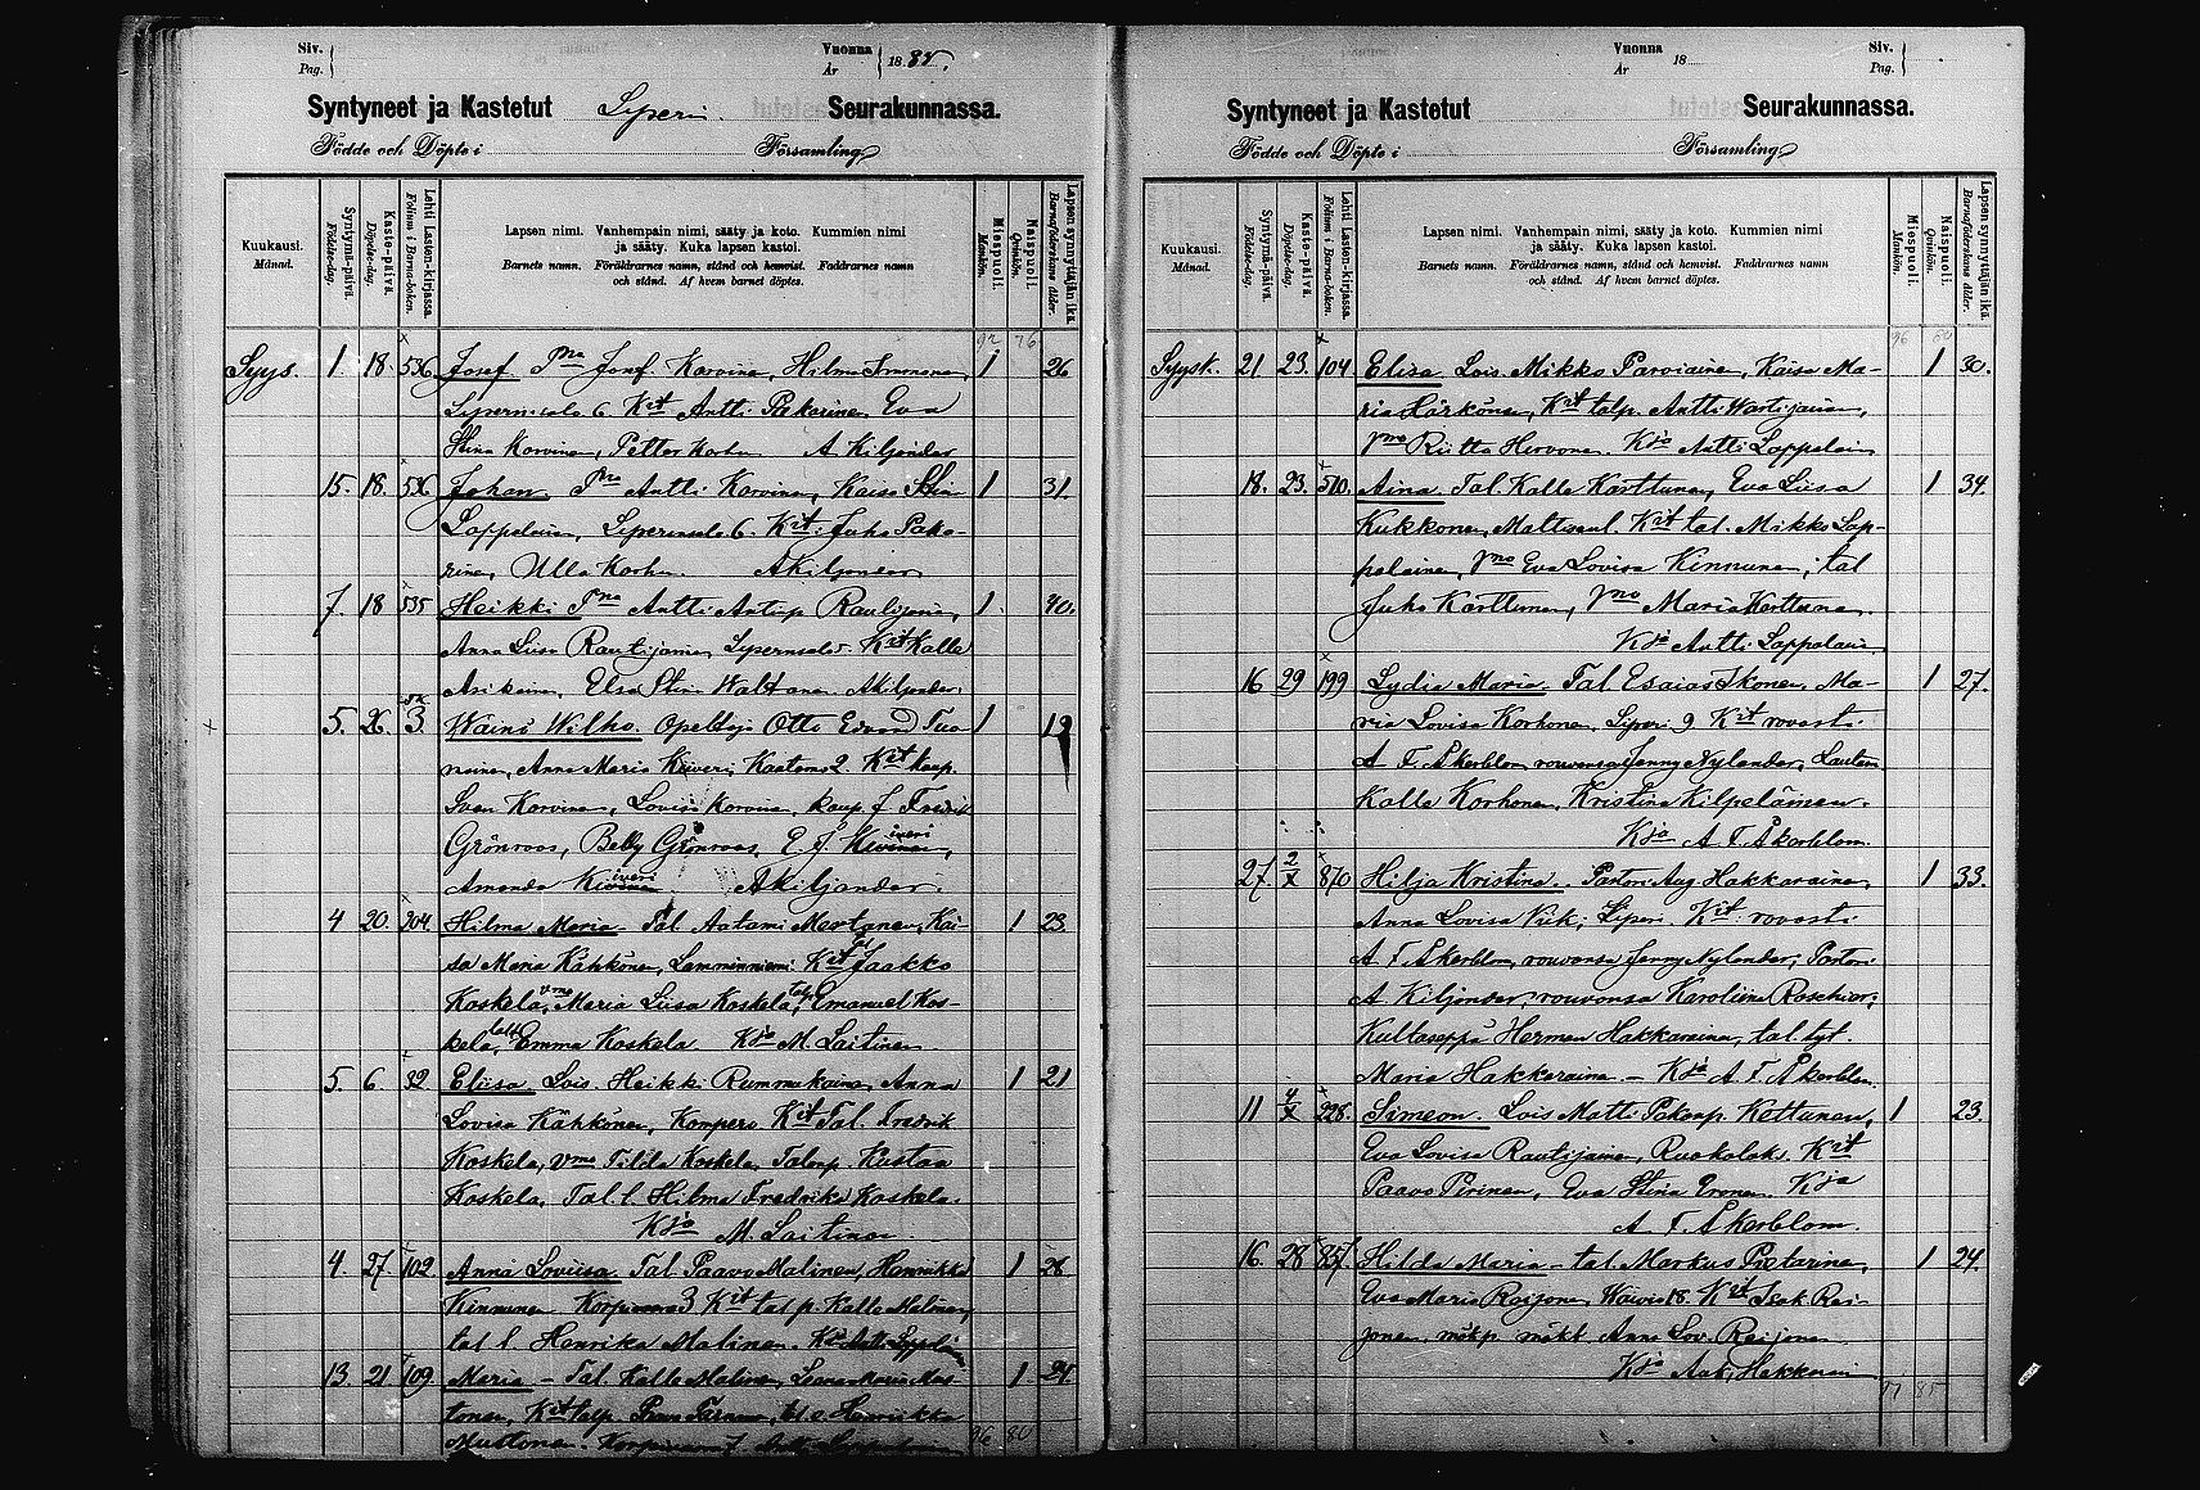 Siv.
Pag.
Vuonna
År
18 85.
Syntyneet ja Kastetut Liperi. Seurakunnassa.
Födde och Döpte i Församling
Kuukausi.
Månad.
Syntymä-päivä.
Födelse-dag.
Kaste-päivä.
Döpelse-dag.
Lehti Lasten-kirjassa.
Folium i Barna-boken.
Lapsen nimi. Vanhempain nimi, sääty ja koto. Kummien nimi
ja sääty. Kuka lapsen kastoi.
Barnets namn. Föräldrarnes namn, stånd och hemvist. Faddrarnes namn
och stånd. Af hvem barnet döptes.
Miespuoli.
Mankön.
Naispuoli.
Qvinkön.
Lapsen synnyttäjän ikä.
Barnaföderskans ålder.
92 76
Syys. 1. 18. 536 Josef Karvinen, Hilma Immonen, 1 26
Liperinsalo 6. Kit Antti Pekarinen, Eva
Stina Korvinen, Petter Korhu A Kiljander
15. 18. 536 Johan Antti Korvinen, Kaisa Stiina 1 31.
Lappalainen, Liperinsalo 6. Kit: Juho Paka-
rinen, Ulla Korhu. A Kiljander
7. 18 535 Heikki Antti Antinp Rautijainen, 1. 40.
Anna Liisa Rautijainen Liperinsalo Kit Kalle
Asikainen, Elsa Stina Waltanen AKiljander.
5. 26. 3. Wäinö Wilho. Opettaja Otto Edvard Tuo- 1 19
nainen, Anna Maria Kiiveri, Kaatamo 2. Kit kaup.
Sven Korvinen, Lovisa Korvinen, kaup. J Fredrik
Grönroos, Betty Grönroos, E. J. Kiiveri,
Amanda Kiiveri AKiljander.
4 20. 204. Hilma Maria Tal Aatami Mertanen, Kai- 1 23.
sa Maria Kähkönen, Lamminniemi. Kit Jaakko
Koskela, vmo Maria Liisa Koskela, talp. Emanuel Kos-
kela, Emma Koskela. Kja M. Laitinen
5. 6. 32 Eliisa. Lois. Heikki Rummukainen, Anna 1 21
Lovisa Kähkönen, Kompero Kit Tal. Fredrik
Koskela, vmo Tilda Koskela, Talonp. Kustaa
Koskela, Tal. t. Hilma Fredrika Koskela.
Kja M. Laitinen
4. 27. 102 Anna Loviisa Tal. Paavo Malinen, Henriikka 1 28.
Kinnunen Korpivaara 3 Kit tal p. Kalle Malinen,
tal t. Henrika Malinen. Kja Antti Lappalainen
13. 21. 109 Maria – Tal. Kalle Malinen, Leena Maria Mus- 1. 24.
tonen, Kit talp.
Mustonen. 96 80
Vuonna
År
18
Siv.
Pag.
Syntyneet ja Kastetut Seurakunnassa.
Födde och Döpte i Församling
Kuukausi.
Månad.
Syntymä-päivä.
Födelse-dag.
Kaste-päivä.
Döpelse-dag.
Lehti Lasten-kirjassa.
Folium i Barna-boken.
Lapsen nimi. Vanhempain nimi, sääty ja koto. Kummien nimi
ja sääty. Kuka lapsen kastoi.
Barnets namn. Föräldrarnes namn, stånd och hemvist. Faddrarnes namn
och stånd. Af hvem barnet döptes.
Miespuoli.
Mankön.
Naispuoli.
Qvinkön.
Lapsen synnyttäjän ikä.
Barnaföderskans ålder.
96 80
Syysk. 21 23. 104 Elisa Lois. Mikko Parviainen, Kaisa Ma- 1 30.
ria Härkönen, Kit talp. Antti Wartijainen,
vmo Riitta Hirvonen. Kja Antti Lappalain
18. 23. 510. Aina. Tal. Kalle Karttunen, Eva Liisa 1 34.
Kukkonen, Kit tal. Mikko Lap-
palainen, vmo Eva Lovisa Kinnunen; tal
Juho Karttunen, vmo Maria Karttunen.
Kja Antti Lappalain
16 29 199 Lydia Maria. Tal. Esaias Ikonen, Ma- 1 27.
ria Lovisa Korhonen. Liperi 9 Kit rovasti
A F. Åkerblom, rouvansa Jenny Nylander, Lautam.
Kalle Korhonen, Kristina Kilpeläinen.
Kja A. F. Åkerblom.
27. 2/X 870 Hilja Kristina. Pastori Aug. Hakkarainen, 1 33.
Anna Lovisa Viik; Liperi. Kit: rovasti
A F Åkerblom, rouvansa Jenny Nylander; Pastori
A. Kiljander, rouvansa Karoliina Roschier;
Kultaseppä Herman Hakkarainen, tal. tyt.
Maria Hakkarainen – Kja A. F. Åkerblom.
11 4/X 228. Simeon. Lois Matti Pekanp. Kettunen, 1 23.
Eva Lovisa Rautijainen, Ruokolak. Kit
Paavo Pirinen, Eva Stina Eronen. Kja
A. F. Åkerblom.
16. 28 857. Hilda Maria – tal. Markus Pietarinen, 1 24.
Eva Maria Reijonen, 18. Kit Isak Rei-
jonen, mökp. mökt. Anna Lov. Reijonen
Kja Aug. Hakkarain
97 85